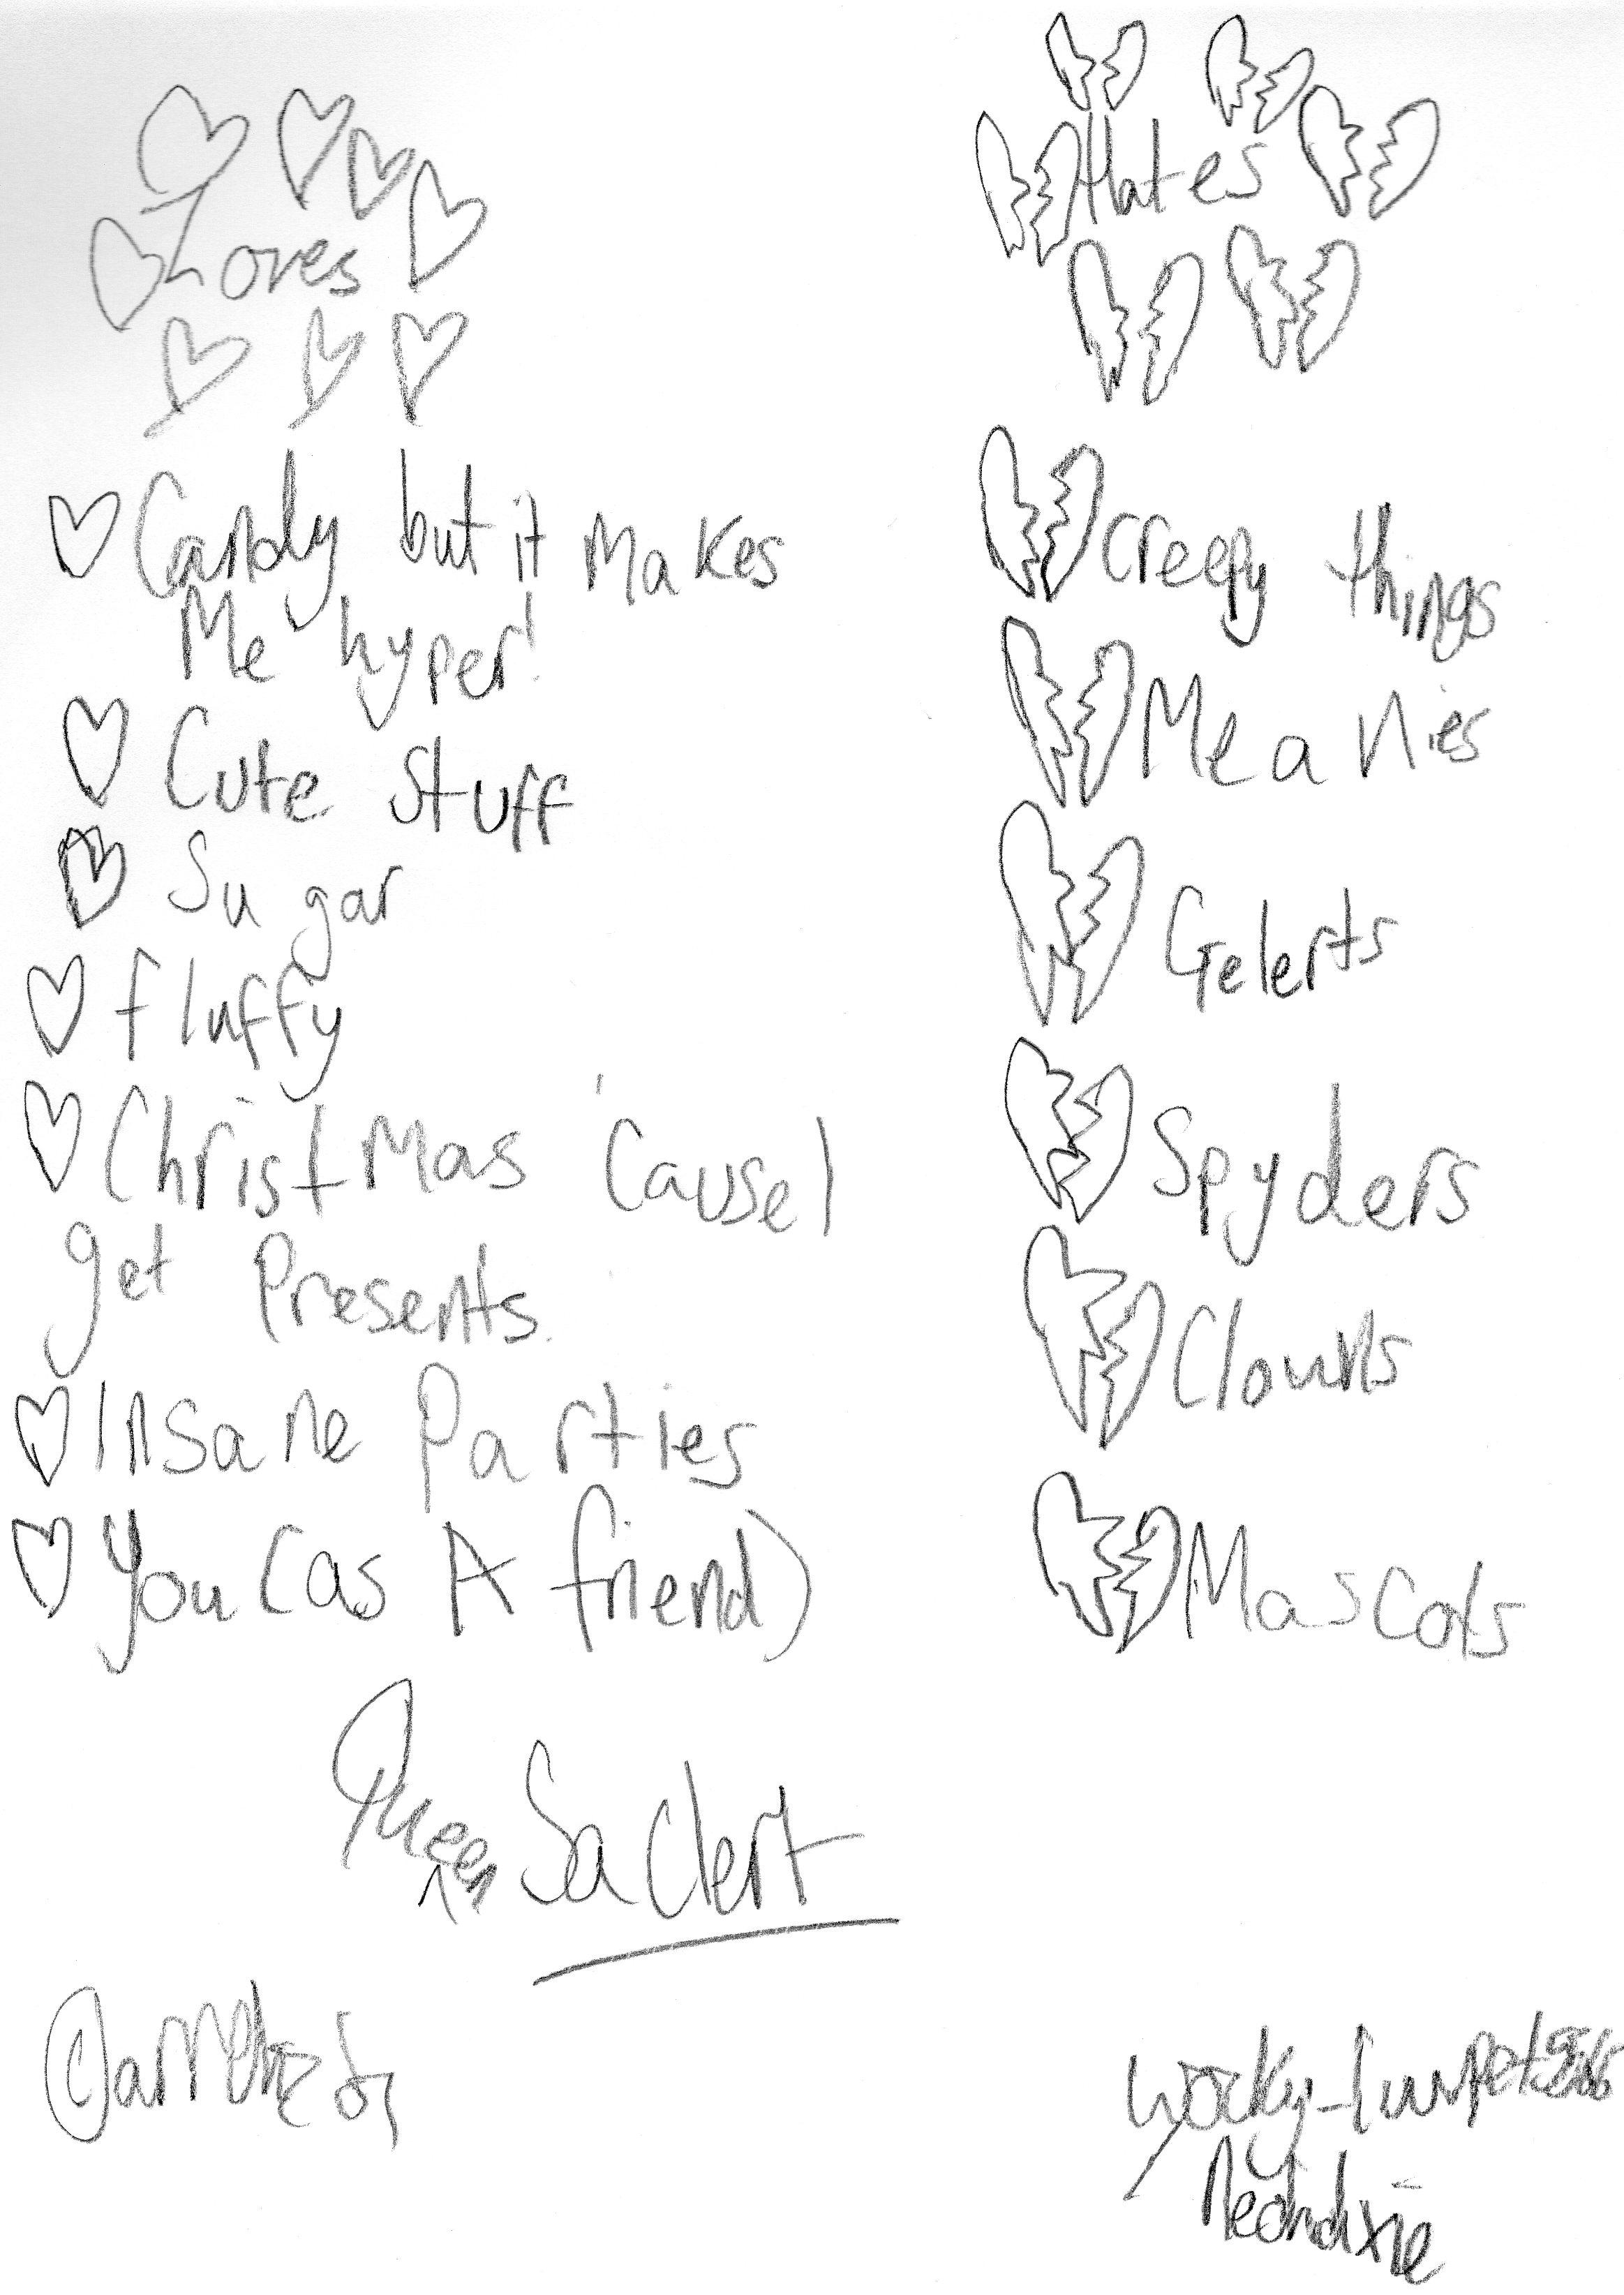 Loves
Candy but it Makes
Me hyper!
Cute Stuff
Sugar
fluffy
ChristMas 'Cause I
get Presents.
Insane Parties
You (as A friend)
Hates
Creepy things
Meanies
Gelerts
Spyders
Clowns
Mascots
Queen Saclert
Neondixie